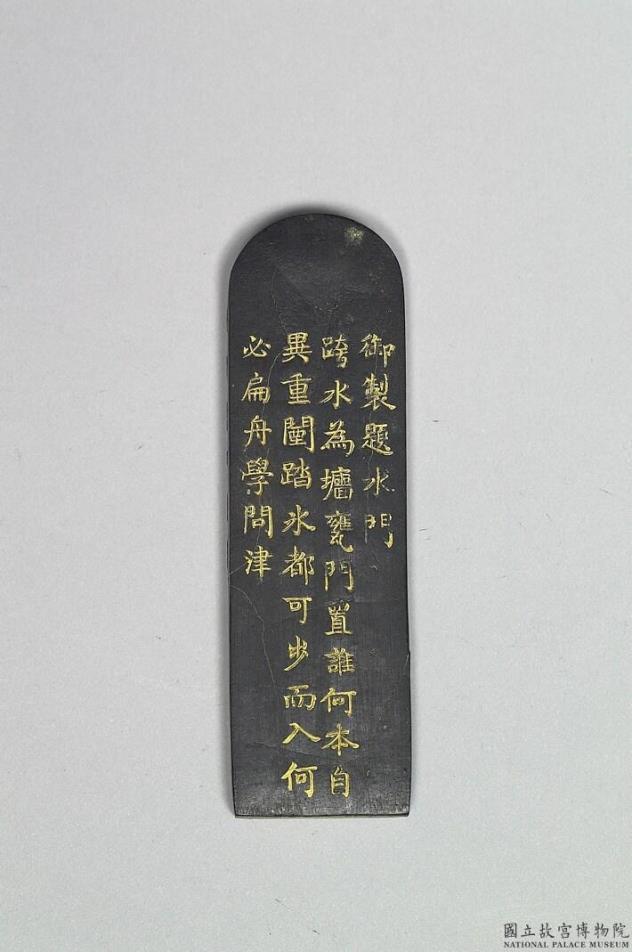 御製題水門
跨水為墻甕門置誰何本自
異重闉踏氷都可步而入何
必扁舟學問津
國立故宮博物院
NATIONAL PALACE MUSEUM